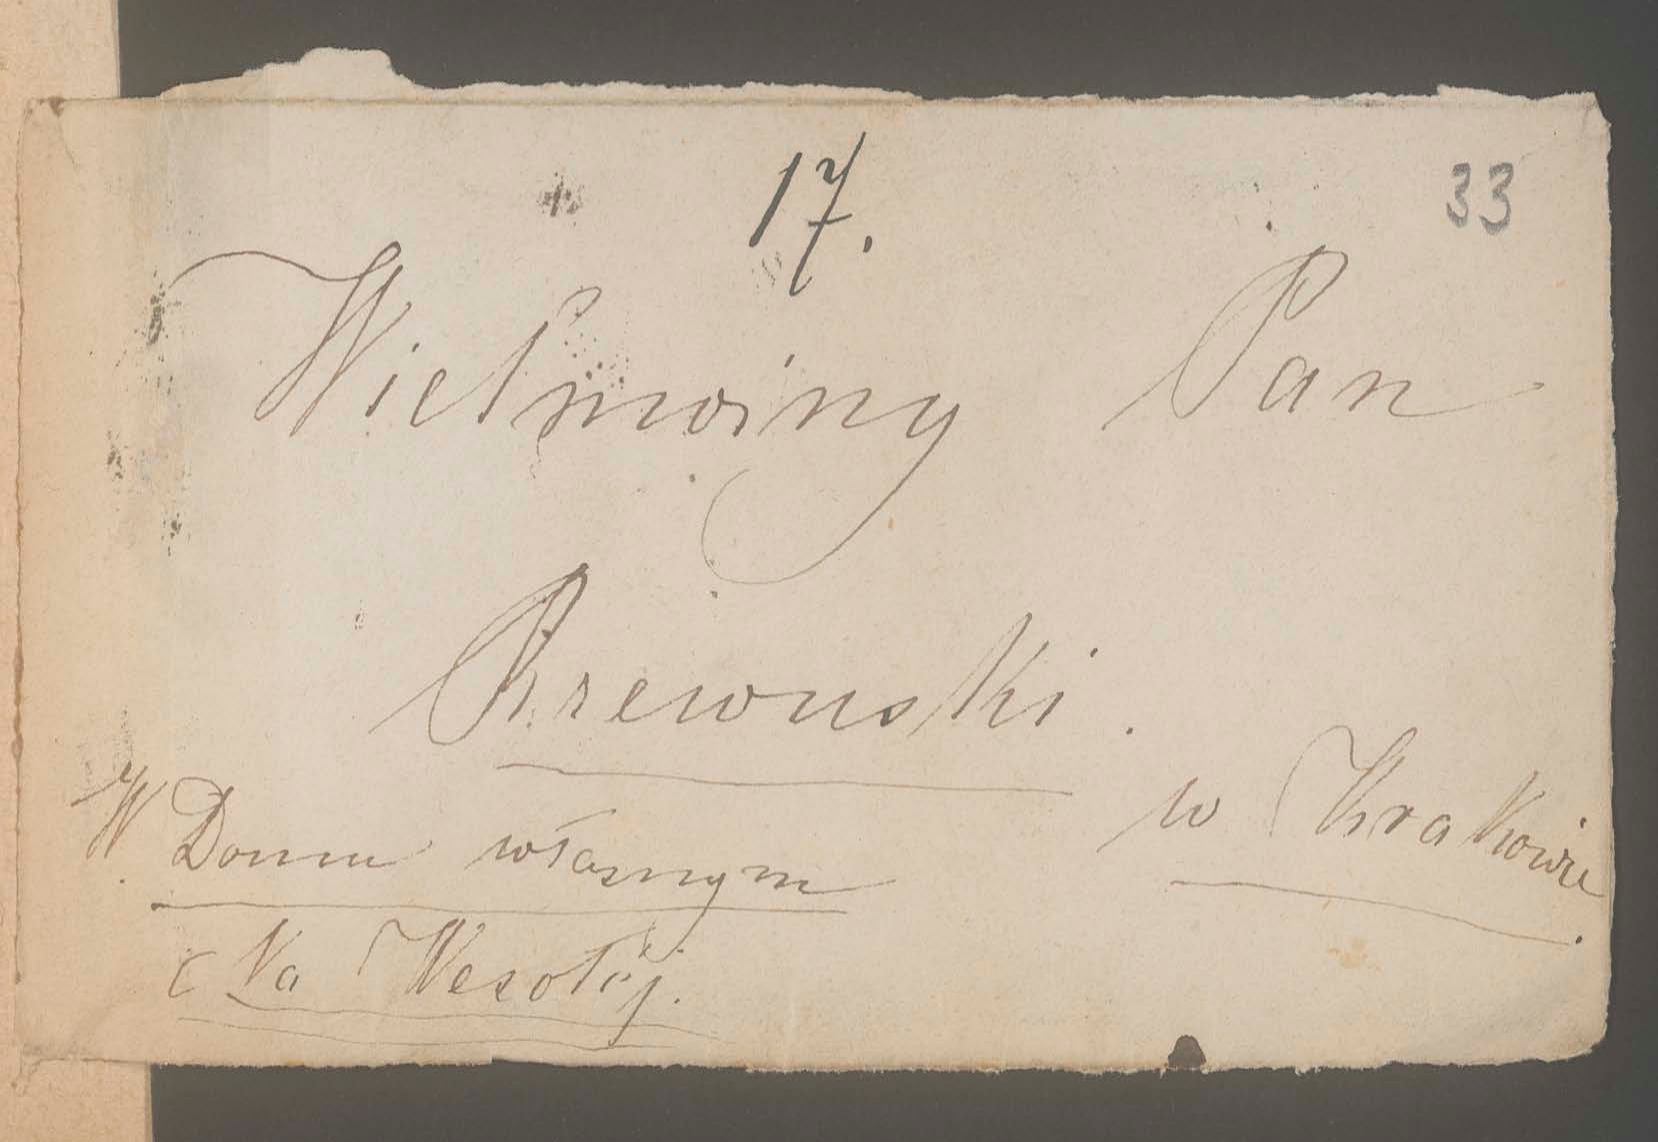 17.
33
Wielmożny Pan
Rzewuski.
w Krakowie
W Domu własnym
Na Wesołéj.